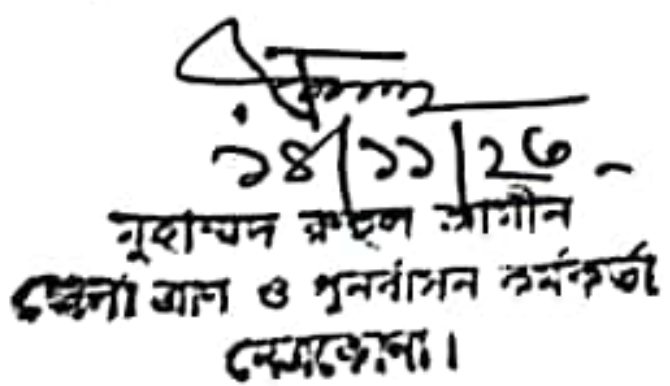 ১৪/১১/২৩
মুহাম্মদ রুহুল আমীন
জেলা ত্রাণ ও পুনর্বাসন কর্মকর্তা
নেত্রকোনা।